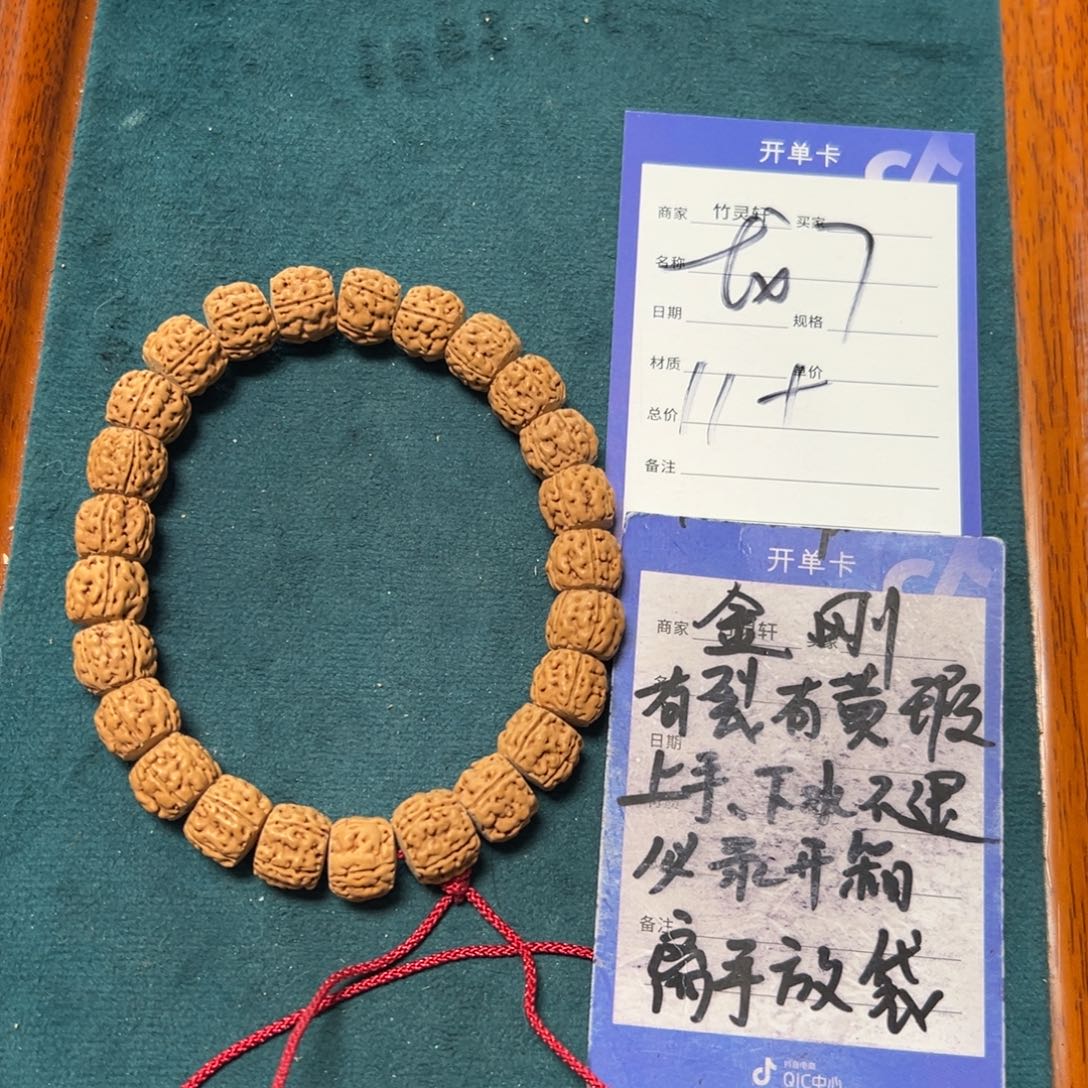 开单卡
商家 竹灵轩 买家
名称
日期 规格
材质 单价
总价
11+
备注
开单卡
商家 轩
金刚
有裂有黄瑕
日期
上手、下水不退
必录开箱
备注
离手放袋
抖音电商
QIC中心